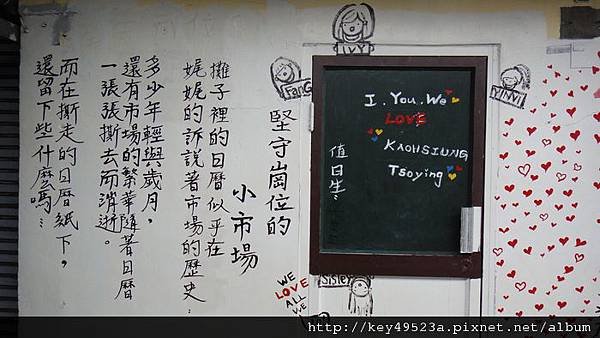 堅守崗位的
小市場
攤子裡的日曆似乎在
娓娓的訴說著市場的歷史…
多少年輕與歲月，
還有市場的繁華隨著日曆
一張張撕去而消逝。
而在撕走的日曆紙下，
還留下些什麼嗎…
IVY
FanG
VIVI
I. You. We
LOVE
KAOHSIUNG
Tsoying
值日生：
Sister
WE
LOVE
ALL
WE
http://key49523a.pixnet.net/album